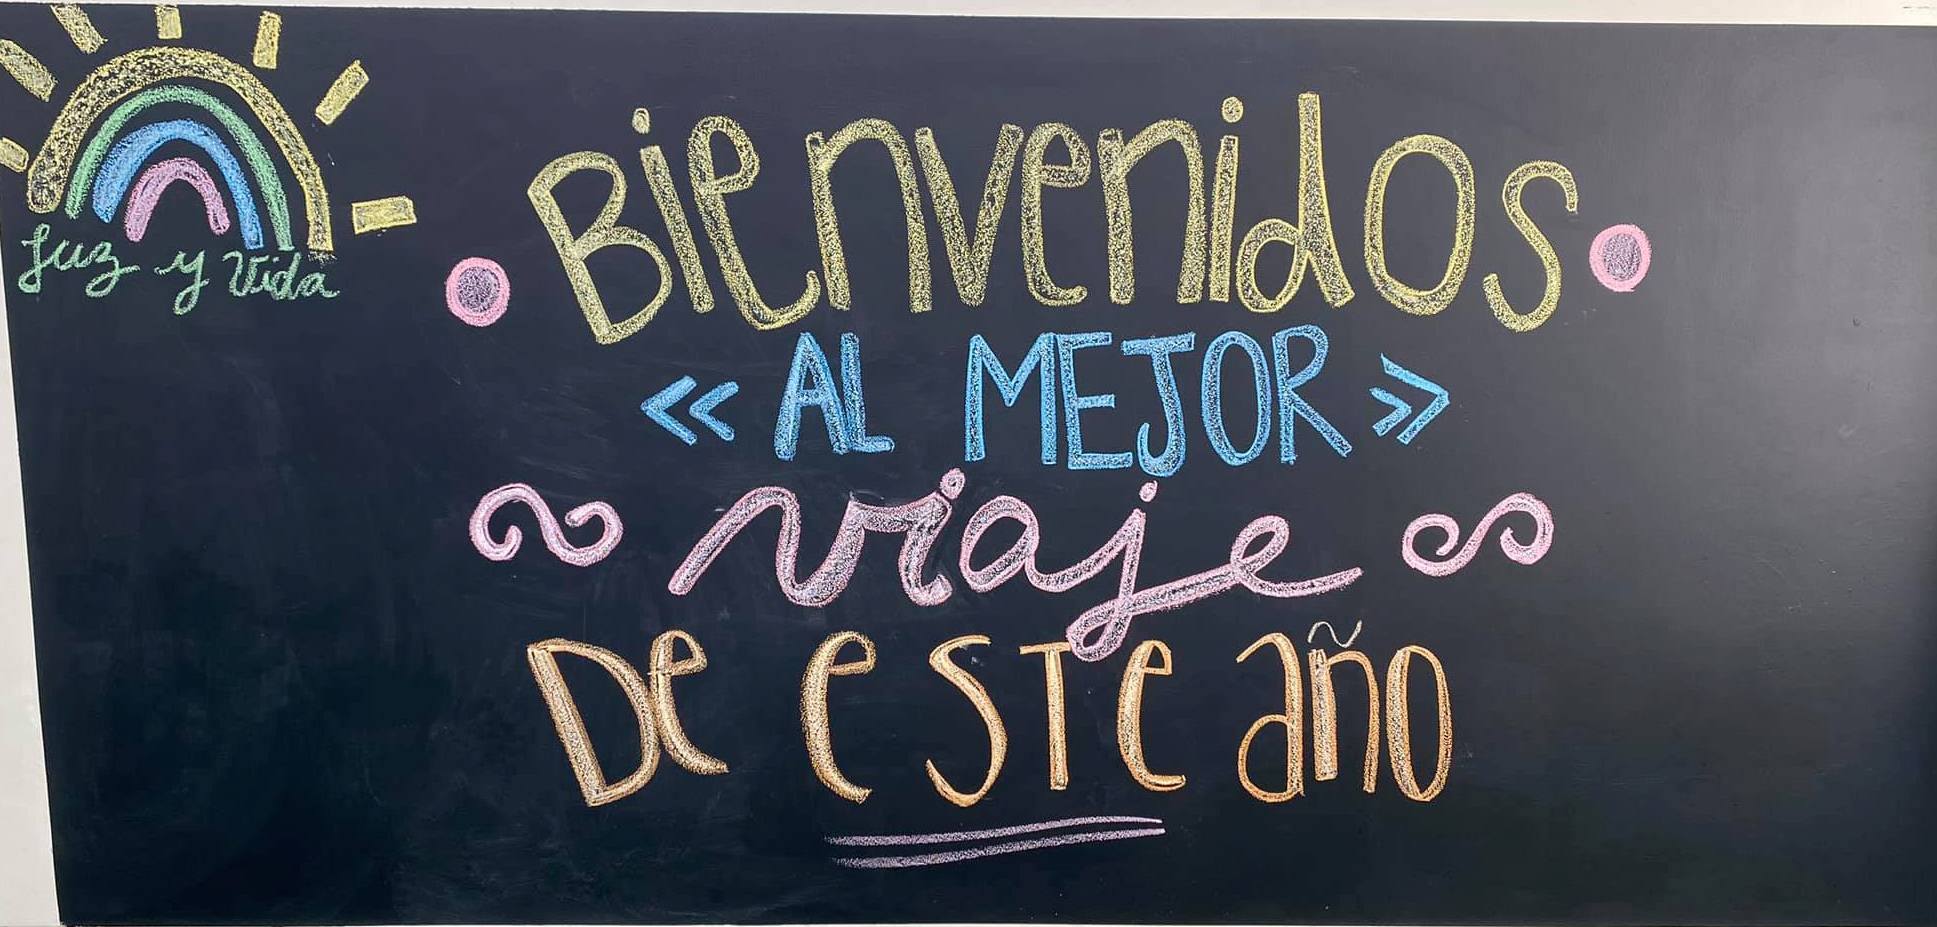 Luz y Vida
Bienvenidos
<< AL MEJOR >>
viaje
De este año